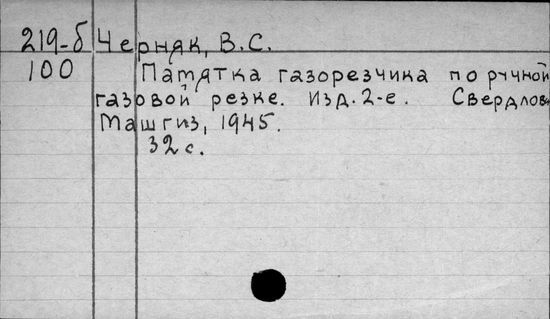 219-б Черняк, В.С.
100 Памятка газорезчика по ручной
газовой резке. Изд. 2-е. Свердловск
Машгиз, 1945.
32 с.